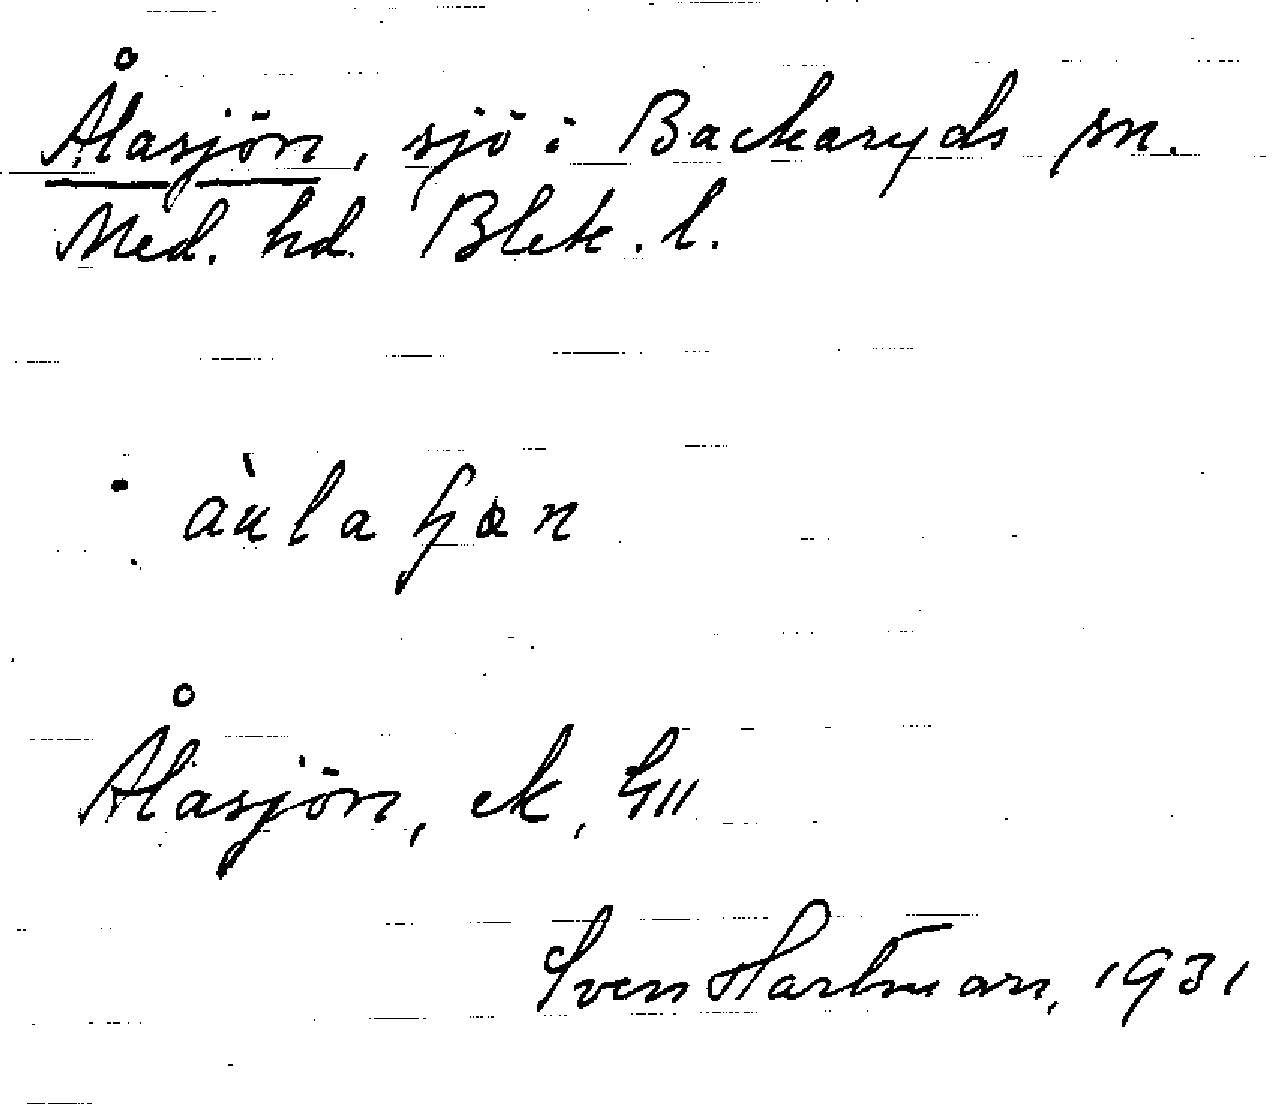 Ålasjön, sjö i Backaryds sn.
Med. hd. Blek. l.
Ålasjön, ek,
Sven Hartman, 1931